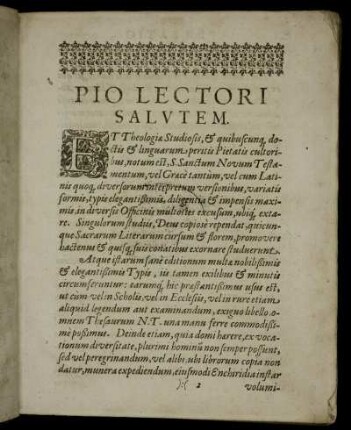 PIO LECTORI
SALVTEM.
ET Theologiæ Studiosis, & quibuscunq, do-
ctis & linguarum peritis Pietatis cultori-
bus, notum est, S. Sanctum Novum Testa-
mentum, vel Græcè tantùm, vel cum Lati-
nis quoq, diversorum interpretum versionibus, variatis
formis, typis elegantissimis, diligentia & impensis maxi-
mis in diversis Officinis multoties excusum, ubiq, exta-
re. Singulorum studiis, Deus copiosè rependat, quicun-
que Sacrarum Literarum cursum & florem, promovere
hactenus & quisq, suis conatibus exornare studuerunt.
Atque istarum sanè editionum multæ nobilissimis
& elegantissimis Typis, iis tamen exilibus & minutis
circumferuntur: earumq, hic præstantissimus usus est,
ut cum vel in Scholis, vel in Ecclesiis, vel in rure etiam
aliquid legendum aut examinandum, exiguo libello o-
mnem Thesaurum N.T. una manu ferre commodissi-
mè possimus. Deinde etiam, quia domi hærere, ex voca-
tionum diversitate, plurimi hominũ non semper possunt,
sed vel peregrinandum, vel alibi, ubi librorum copia non
datur, munera expediendum, ejusmodi Enchiridia instar
2
volumi-